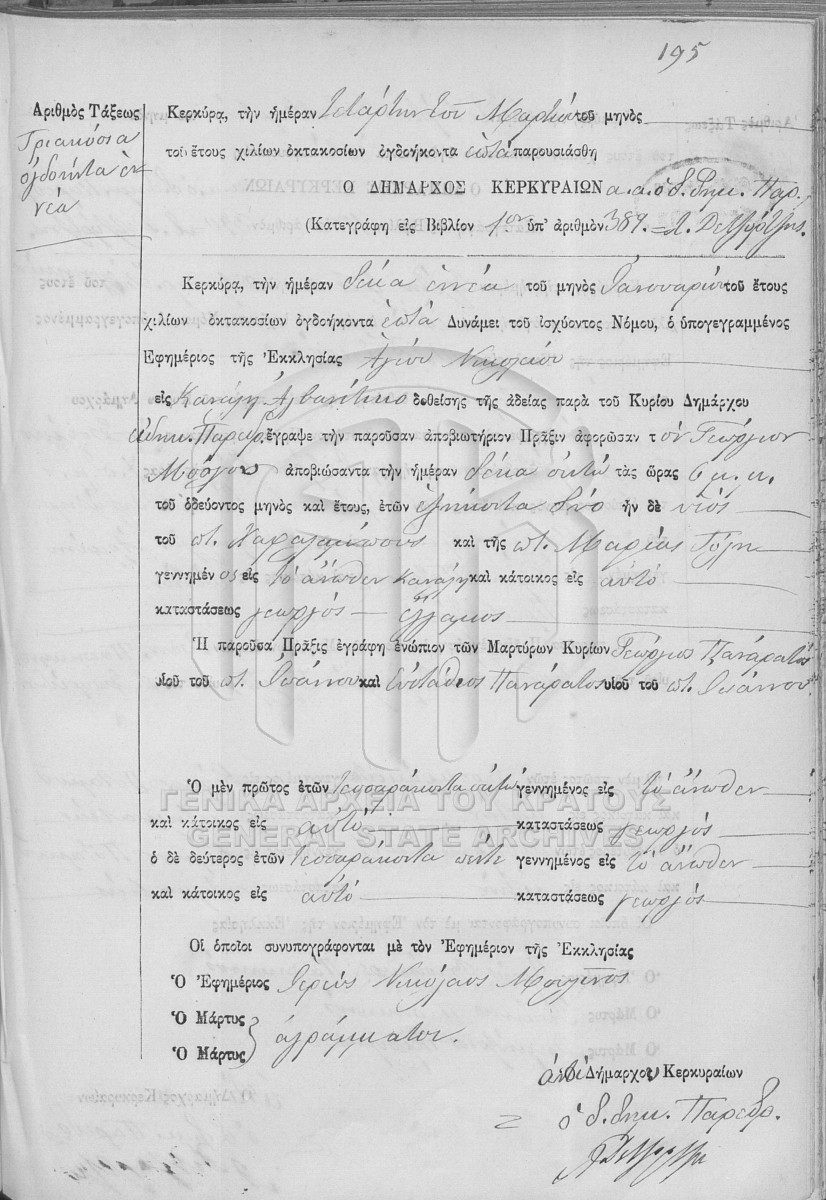 195
Ἀριθμὸς Τάξεως
Τριακόσια
ὀγδοήντα ἐν
νέα
Κερκύρᾳ, τὴν ἡμέραν Τετάρτην τοῦ Μαρτίου τοῦ μηνὸς
τοῦ ἔτους χιλίων ὀκτακοσίων ὀγδοήκοντα ἑπτὰ παρουσιάσθη
Ο ΔΗΜΑΡΧΟΣ ΚΕΡΚΥΡΑΙΩΝ α.α. ὁ δ. Δημ. Παρ.
(Κατεγράφη εἰς Βιβλίον 1ον ὑπ' ἀριθμὸν 389.
Κερκύρᾳ, τὴν ἡμέραν δέκα ἐννέα τοῦ μηνὸς Ἰανουαρίου τοῦ ἔτους
χιλίων ὀκτακοσίων ὀγδοήκοντα ἑπτὰ Δυνάμει τοῦ ἰσχύοντος Νόμου, ὁ ὑπογεγραμμένος
Ἐφημέριος τῆς Ἐκκλησίας Ἁγίου Νικολάου
εἰς Κανάλη δοθείσης τῆς ἀδείας παρὰ τοῦ Κυρίου Δημάρχου
δημ. Παρέδ. ἔγραψε τὴν παροῦσαν ἀποβιωτήριον Πρᾶξιν ἀφορῶσαν τ ὸν Γεώργιον
ἀποβιώσαντα τὴν ἡμέραν δέκα ὀκτὼ τὰς ὥρας 6 μ. μ.
τοῦ ὁδεύοντος μηνὸς καὶ ἔτους, ἐτῶν ἑξήκοντα δύο ἦν δὲ υἱὸς
τοῦ ποτ. Χαραλάμπους καὶ τῆς ποτ. Μαρίας
γεννημέν ος εἰς τὸ ἄνωθεν Κανάλη καὶ κάτοικος εἰς αὐτό
καταστάσεως γεωργός ἕλλην
Ἡ παροῦσα Πρᾶξις ἐγράφη ἐνώπιον τῶν Μαρτύρων Κυρίων Γεώργιος Πανάρατος
υἱοῦ τοῦ ποτ. Ἰωάννου καὶ Εὐστάθιος Πανάρατος υἱοῦ τοῦ ποτ. Ἰωάννου
Ὁ μὲν πρῶτος ἐτῶν τεσσαράκοντα ὀκτὼ γεννημένος εἰς τὸ ἄνωθεν
ΓΕΝΙΚΑ ΑΡΧΕΙΑ ΤΟΥ ΚΡΑΤΟΥΣ
καὶ κάτοικος εἰς αὐτό καταστάσεως γεωργός
GENERAL STATE ARCHIVES
ὁ δὲ δεύτερος ἐτῶν τεσσαράκοντα πέντε γεννημένος εἰς τὸ ἄνωθεν
καὶ κάτοικος εἰς αὐτό καταστάσεως γεωργός
Οἱ ὁποῖοι συνυπογράφονται μὲ τὸν Ἐφημέριον τῆς Ἐκκλησίας
Ὁ Ἐφημέριος Ἱερεὺς Νικόλαος
Ὁ Μάρτυς
Ὁ Μάρτυς ἀγράμματοι.
ἀντὶ Δήμαρχου Κερκυραίων
ὁ δ. Δημ. Πάρεδρ.